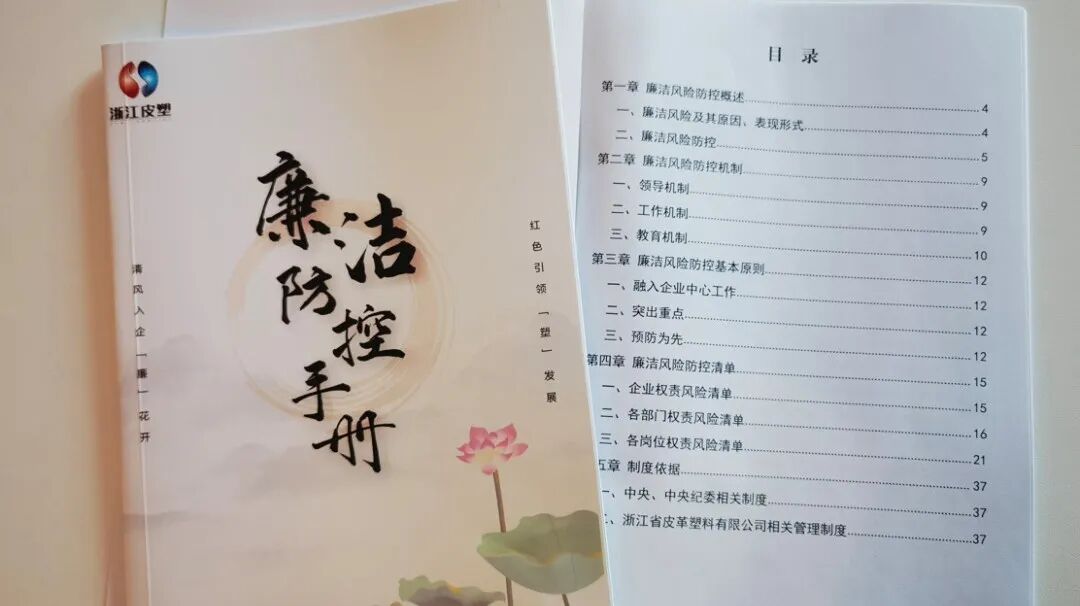 浙江皮塑
廉洁
防控
手册
红色引领「塑」发展
清风入企「廉」花开
目 录
第一章 廉洁风险防控概述........4
一、廉洁风险及其原因、表现形式........4
二、廉洁风险防控........5
第二章 廉洁风险防控机制........9
一、领导机制........9
二、工作机制........9
三、教育机制........10
第三章 廉洁风险防控基本原则........12
一、融入企业中心工作........12
二、突出重点........12
三、预防为先........12
第四章 廉洁风险防控清单........15
一、企业权责风险清单........15
二、各部门权责风险清单........16
三、各岗位权责风险清单........21
五章 制度依据........37
一、中央、中央纪委相关制度........37
二、浙江省皮革塑料有限公司相关管理制度........37